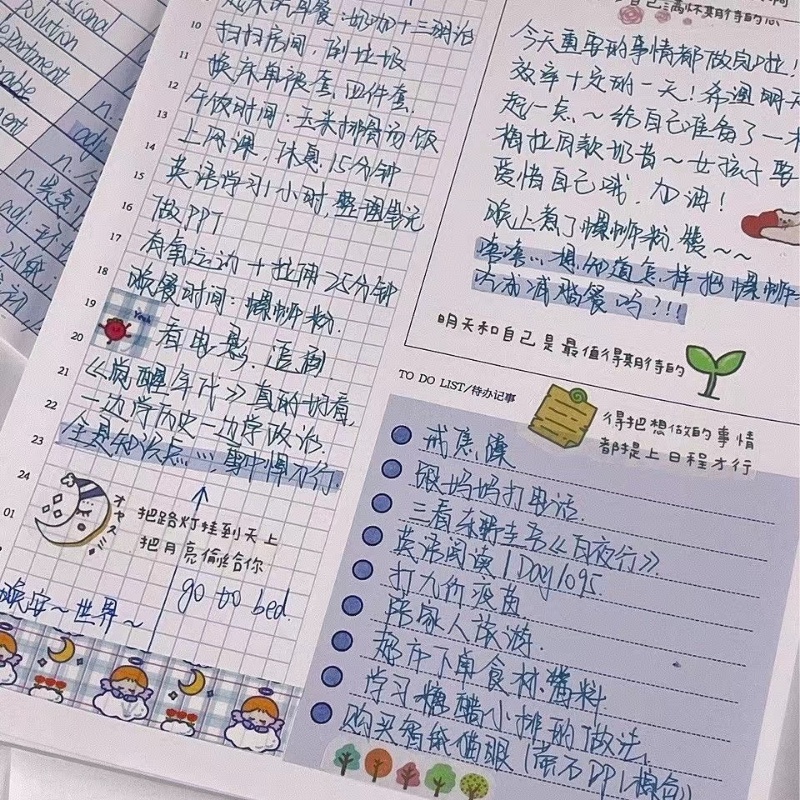 ssional
pollution
department
n.
adj.
10
11
12
13
14
15
16
17
18
19
20
21
22
23
24
01
起床吃早餐：奶咖＋三明治
扫扫房间，倒垃圾
换床单被套，四件套.
午饭时间：玉米排骨汤饭
上网课，休息15分钟
英语学习1小时，整理笔记
做PPT
有氧运动＋拉伸25分钟
晚餐时间：螺蛳粉.
看电影.追剧
《觉醒年代》真的好看，
一边学历史一边学政治.
全是知识点……雪中悍刀行
オヤスミ
把路灯挂到天上
把月亮偷给你
go to bed.
晚安～世界～
自己满怀期待的心
今天重要的事情都做完啦！
效率十足的一天！希望明天
起一点.～给自己准备了一
同款奶昔～女孩子要
爱惜自己哦，加油！
晚上煮了螺蛳粉，馋～～
想知道怎样把螺蛳
吃成减脂餐吗？!!!
明天和自己是最值得期待的
TO DO LIST/待办记事
得把想做的事情
都提上日程才行
戒焦躁
跟妈妈打电话.
三看东野圭吾《白夜行》
英语阅读1Day1095
打九价疫苗
陪家人旅游.
超市下单食材.酱料.
学习糖醋小排的做法.